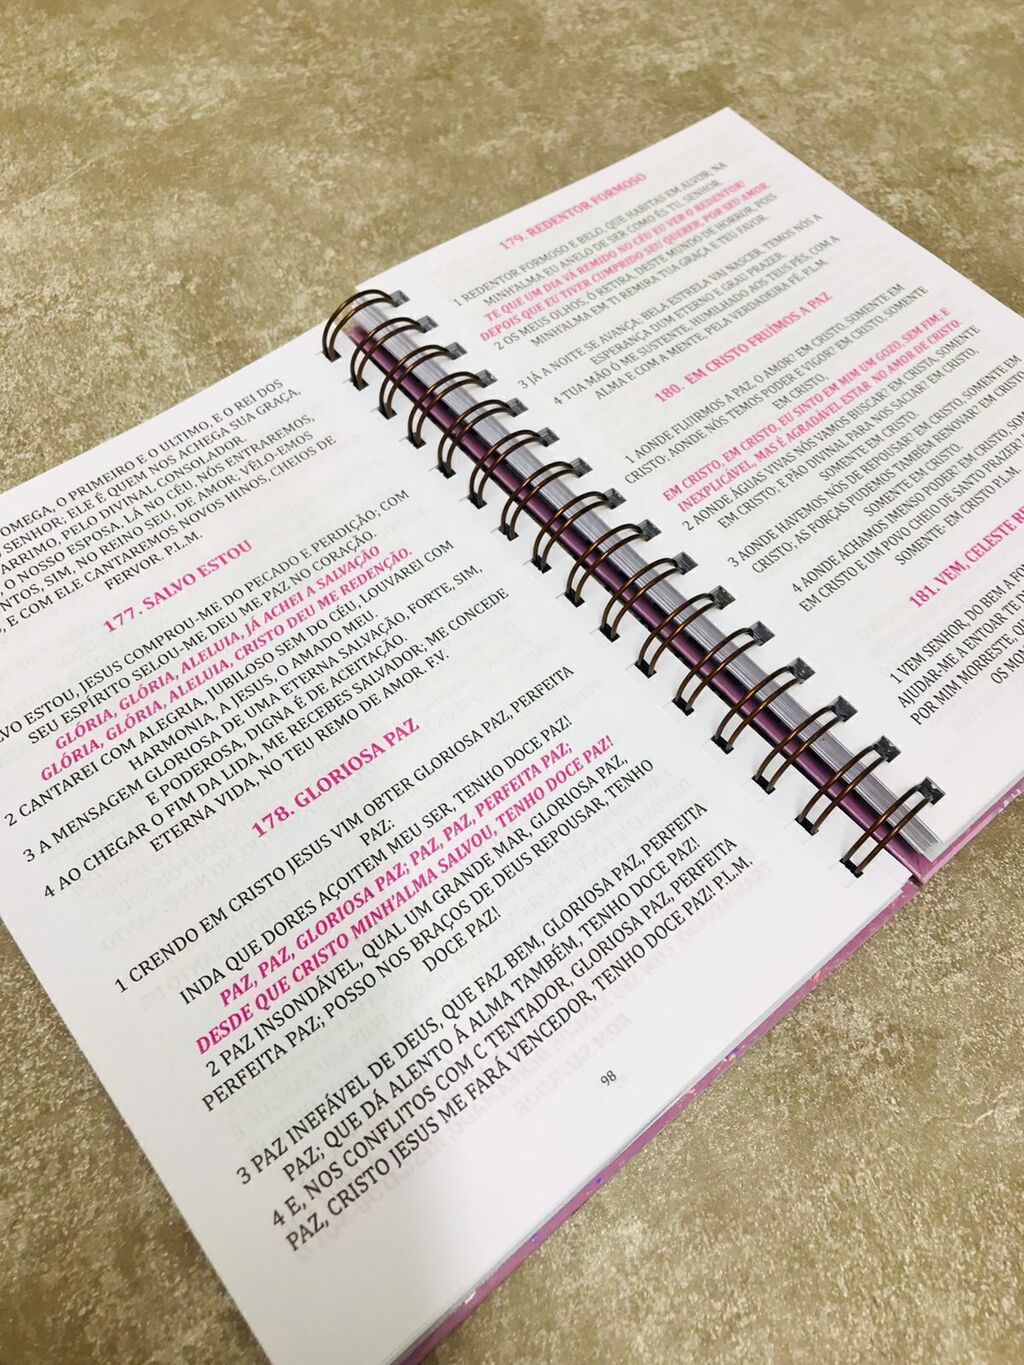 OMEGA, O PRIMEIRO E O ULTIMO, E O REI DOS
SENHOR; ELE É QUEM NOS ACHEGA SUA GRAÇA,
ARRIMO, PELO DIVINAL CONSOLADOR.
O NOSSO ESPOSA, LÁ NO CÉU, NÓS ENTRAREMOS,
NTOS, SIM, NO REINO SEU, DE AMOR; VÊLO-EMOS
, E COM ELE CANTAREMOS NOVOS HINOS, CHEIOS DE
FERVOR. P.L.M.
177. SALVO ESTOU
VO ESTOU, JESUS COMPROU-ME DO PECADO E PERDIÇÃO; COM
SEU ESPÍRITO SELOU-ME DEU ME PAZ NO CORAÇÃO.
GLÓRIA, GLÓRIA, ALELUIA, JÁ ACHEI A SALVAÇÃO
GLÓRIA, GLÓRIA, ALELUIA, CRISTO DEU ME REDENÇÃO.
2 CANTAREI COM ALEGRIA, JUBILOSO SEM DO CÉU, LOUVAREI COM
HARMONIA, A JESUS, O AMADO MEU.
3 A MENSAGEM GLORIOSA DE UMA ETERNA SALVAÇÃO, FORTE, SIM,
E PODEROSA, DIGNA É DE ACEITAÇÃO.
4 AO CHEGAR O FIM DA LIDA, ME RECEBES SALVADOR; ME CONCEDE
ETERNA VIDA, NO TEU REMO DE AMOR. F.V.
178. GLORIOSA PAZ
1 CRENDO EM CRISTO JESUS VIM OBTER GLORIOSA PAZ, PERFEITA
PAZ:
INDA QUE DORES AÇOITEM MEU SER, TENHO DOCE PAZ!
PAZ, PAZ, GLORIOSA PAZ; PAZ, PAZ, PERFEITA PAZ;
DESDE QUE CRISTO MINH'ALMA SALVOU, TENHO DOCE PAZ!
2 PAZ INSONDÁVEL, QUAL UM GRANDE MAR, GLORIOSA PAZ,
PERFEITA PAZ; POSSO NOS BRAÇOS DE DEUS REPOUSAR, TENHO
DOCE PAZ!
3 PAZ INEFÁVEL DE DEUS, QUE FAZ BEM, GLORIOSA PAZ, PERFEITA
PAZ; QUE DÁ ALENTO Á ALMA TAMBÉM, TENHO DOCE PAZ!
4 E, NOS CONFLITOS COM C TENTADOR, GLORIOSA PAZ, PERFEITA
PAZ, CRISTO JESUS ME FARÁ VENCEDOR, TENHO DOCE PAZ! P.L.M.
98
179. REDENTOR FORMOSO
1 REDENTOR FORMOSO E BELO, QUE HABITAS EM ALVOR; NA
MINH'ALMA EU ANELO DE SER COMO ÉS TU, SENHOR
TE QUE UM DIA VÁ REMIDO NO CÉU EU VER O REDENTOR!
DEPOIS QUE EU TIVER CUMPRIDO SEU QUERER, POR SEU AMOR
2 OS MEUS OLHOS, Ó RETIRA, DESTE MUNDO DE HORROR, POIS
MINH'ALMA EM TI REMIRA A TUA GRAÇA E TEU FAVOR.
3 JÁ A NOITE SE AVANÇA, BELA ESTRELA VAI NASCER, TEMOS NÓS A
ESPERANÇA DUM ETERNO E GRAU PRAZER
4 TUA MÃO Ó ME SUSTENTE, HUMILHADO AOS TEUS PÉS, COM A
ALMA E COM A MENTE, PELA VERDADEIRA FÉ. P.L.M.
180. EM CRISTO FRUÍMOS A PAZ
1 AONDE FLUIRMOS A PAZ, O AMOR? EM CRISTO, SOMENTE EM
CRISTO; AONDE NÓS TEMOS PODER E VIGOR? EM CRISTO, SOMENTE
EM CRISTO,
EM CRISTO, EM CRISTO, EU SINTO EM MIM UM GOZO, SEM FIM, E
INEXPLICÁVEL, MAS É AGRADÁVEL ESTAR NO AMOR DE CRISTO.
2 AONDE ÁGUAS VIVAS NÓS VAMOS BUSCAR? EM CRISTA, SOMENTE
EM CRISTO; E PÃO DIVINAL PARA NOS SACIAR? EM CRISTO,
SOMENTE EM CRISTO.
3 AONDE HAVEMOS NÓS DE REPOUSAR? EM CRISTO, SOMENTE EM
CRISTO; AS FORÇAS PUDEMOS TAMBÉM RENOVAR? EM CRISTO
SOMENTE EM CRISTO.
4 AONDE ACHAMOS IMENSO PODER! EM CRISTO, SOM
EM CRISTO E UM POVO CHEIO DE SANTO PRAZER?
SOMENTE: EM CRISTO P.L.M.
181. VEM, CELESTE RE
1 VEM SENHOR, DO BEM A FON
AJUDAR-ME A ENTOAR TE D
POR MIM MORRESTE, QU
OS MO